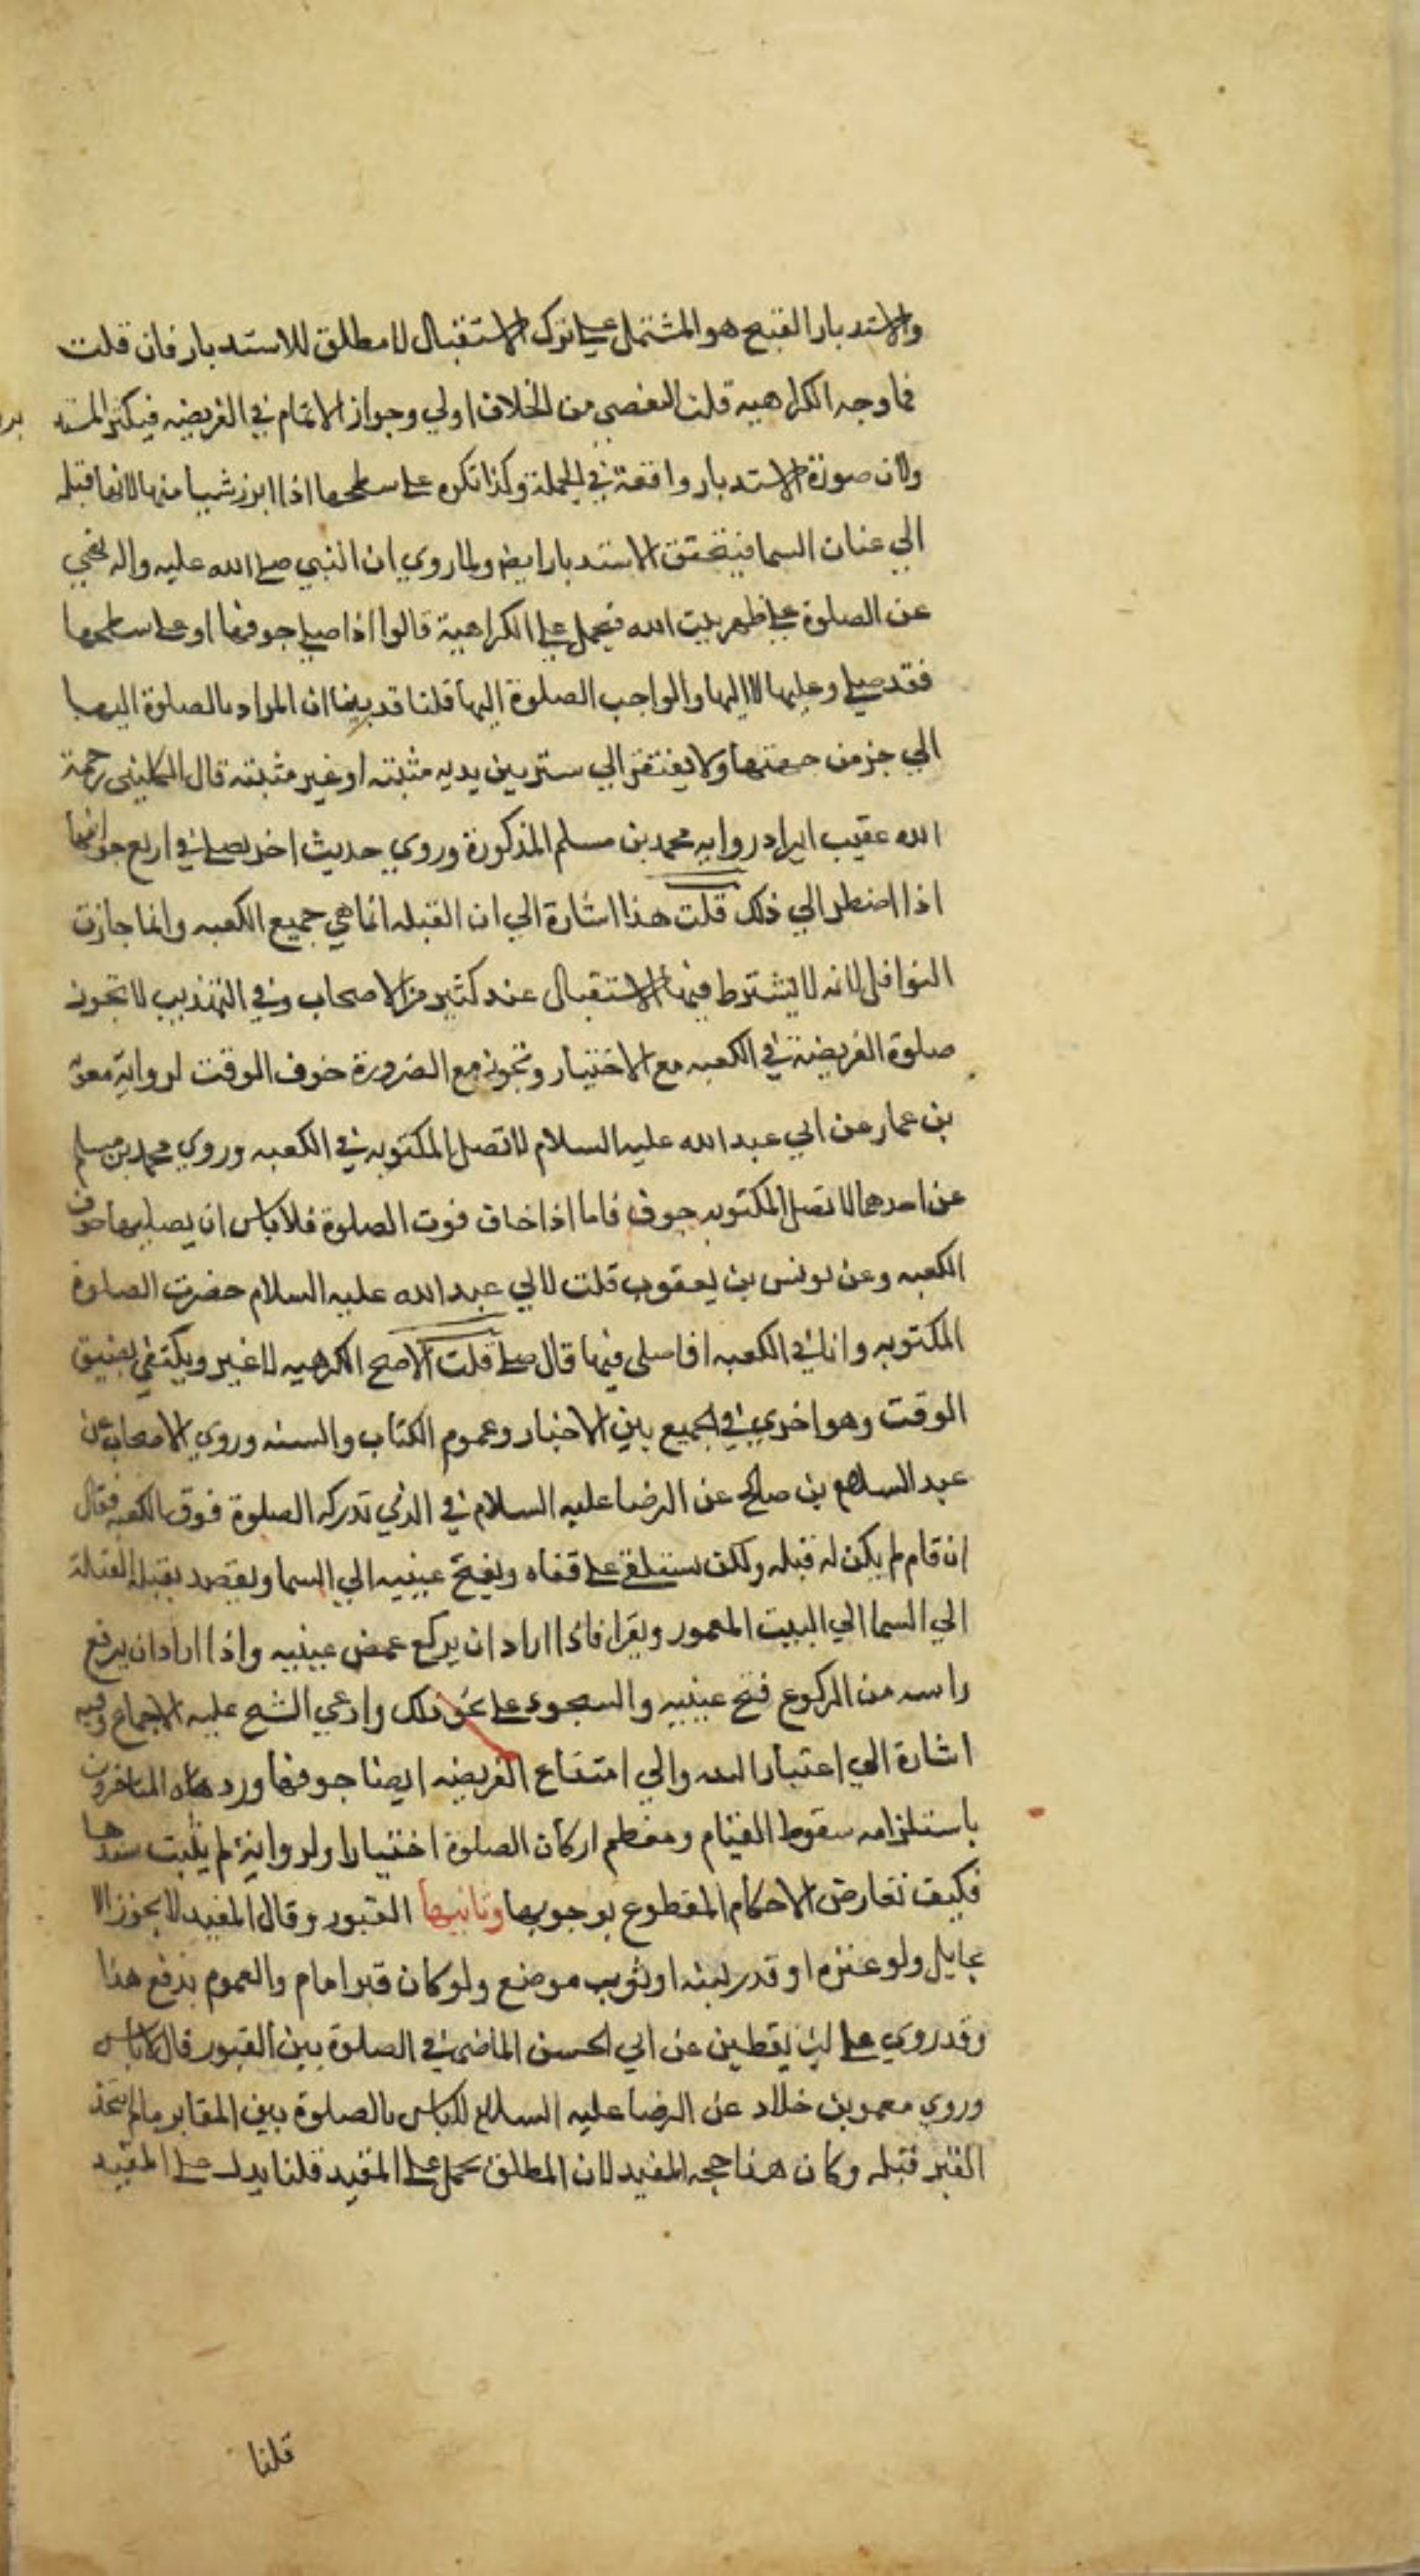 والاستدبار القبيح هو المشتمل علي ترك الاستقبال لا مطلق للاستدبار فان قلت
فما وجه الكراهيه قلت التفصي من الخلاف اولي وجواز الاتمام في الفريضه فيكثر المستد
بر
ولان صورة الاستدبار واقعة في الجملة وكذا تكره علي سطحها اذا ابرز شيا منها لانها قبله
الي عنان السما فيتحقق الاستدبار ايض ولما روي ان النبي صلي الله عليه واله نهي
عن الصلوة علي ظهر بيت الله فيحمل علي الكراهية قالوا اذا صلي جوفها او علي سطحها
فقد صلي وعليها لا اليها والواجب الصلوة اليها قلنا قد بينا ان المراد بالصلوة اليها
الي جزمن جهتها ولا يفتقر الي ستر بين يديه مثبته او غير مثبته قال الكليني رحمة
الله عقيب ايراد روايه محمد بن مسلم المذكورة وروي حديث اخر يصلي في اربع جوانبها
اذا اضطر الي ذلك قلت هذا اشارة الي ان القبله انما هي جميع الكعبه وانما جازت
النوافل لانه لا يشترط فيها الاستقبال عند كثير من الاصحاب وفي التهذيب لا تجوز
صلوة الفريضة في الكعبه مع الاختيار وتجوز مع الضرورة خوف الوقت لرواية معوية
بن عمار عن ابي عبد الله عليه السلام لا تصل المكتوبه في الكعبه وروي محمد بن مسلم
عن احدهما لا تصل المكتوبه جوف فاما اذا خاف فوت الصلوة فلا باس ان يصليها جوف
الكعبه وعن يونس بن يعقوب قلت لابي عبد الله عليه السلام حضرت الصلوة
المكتوبه وانا في الكعبه افاصلي فيها قال صلي قلت الاصح الكرهيه لا غير ويكتفي بضيق
الوقت وهو اخري في الجميع بين الاخبار وعموم الكتاب والسنه وروي الاصحاب عن
عبد السلام بن صالح عن الرضا عليه السلام في الذي تدركه الصلوة فوق الكعبه فقال
ان قام لم يكن له قبله ولكن يستلقي علي قفاه ويفتح عينيه الي السما ويقصد بقبله القبلة
الي السما الي البيت المعمور ويقرا فاذا اراد ان يركع غمض عينيه واذا اراد ان يرفع
راسه من الركوع فتح عينيه والسجود علي نحو ذلك وادعي الشيح عليه الاجماع وفيه
اشارة الي اعتبار البنيه والي امتناع الفريضه ايضا جوفها وردها المتاخرون
باستلزامه سقوط القيام ومعظم اركان الصلوة اختيارا ولرواية لم يثبت سندها
فكيف تعارض الاحكام المقطوع بوجوبها وثانيها القبور وقال المفيد لا يجوز الا
بحايل ولو عنزه او قدر لبنه او ثوب موضع ولو كان قبر امام والعموم يدفع هذا
وقد روي علي بن يقطين عن ابي الحسن الماضي في الصلوة بين القبور قال لا باس
وروي معمر بن خلاد عن الرضا عليه السلام لا باس بالصلوة بين المقابر ما لم يتخذ
القبر قبله وكان هذا حجه المفيد لان المطلق يحمل علي المقيد قلنا يدل علي المقيد
قلنا